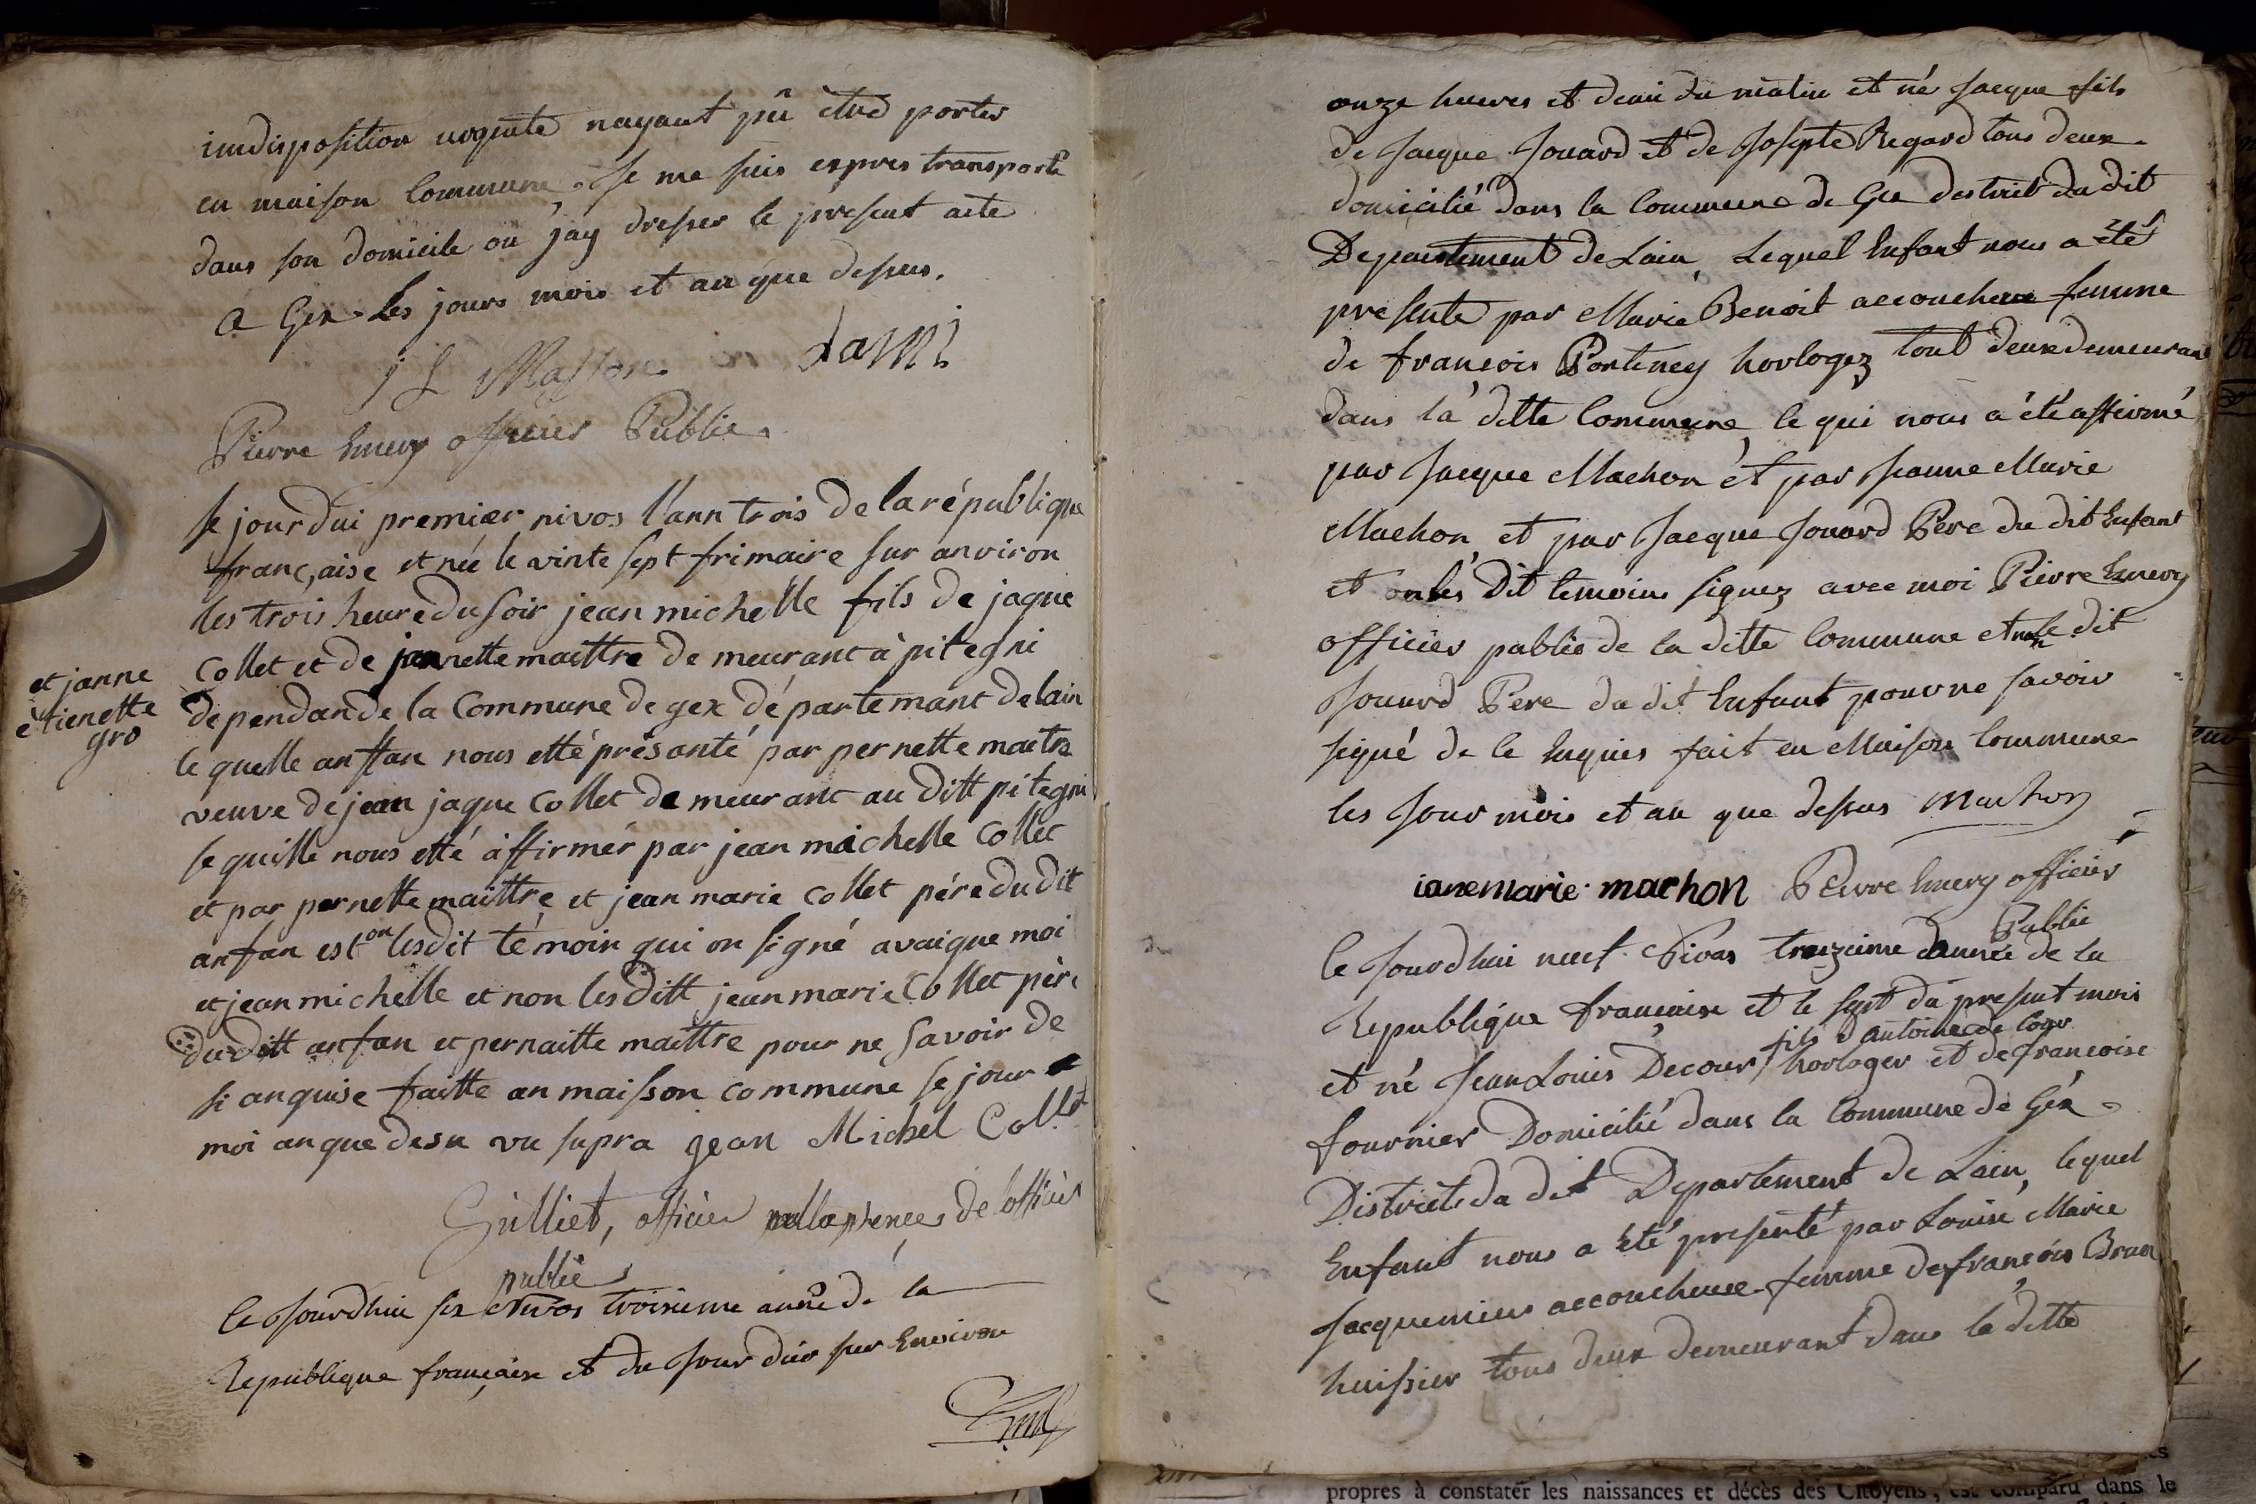 indisposition urgente nayant pû être porter
en maison Commune, Je me suis expres transporté
dans son domicile ou j'ay dresser le present acte
a Gex les jours mois et an que dessus.
j L Masson Lami
Pierre Emery officier Public
se jourdui premier nivos l'ann trois de la république
française et née le vinte sept frimaire sur anviron
les trois heure du soir jean michelle fils de jaque
Collet et de jannette maittre de meurant à pitegni
et janne
étienette
gro
dependan de la Commune de gex département de lain
le quelle anffan nous etté présanté par pernette maitre
veuve de jean jaque Collet de meurant au ditt pitegni
se quille nous etté affirmér par jean michelle Collet
et par pernette maittre et jean marie Collet pére du dit
anfan est on lesdit témoin qui on signé avaique moi
et jean michelle et non lesditt jean marie Collet pére
du ditt anfan et pernaitte maittre pour ne savoir de
si anquise faitte an maisson commune se jour
moi an que desu vu supra jean Michel Collet
Gilliet, officier de l'officier
public
Ce Jourdhui six Nivos troisieme année de la
Republique française et du Jour dier sur Environ
onze heures et demi du matin et né Jacque fils
de Jacque Jouard et de Josepte Regard tous deux
domicilié dans la Commune de Gex destrict du dit
Departement de Lain, Lequel Enfant nous a été
presente par Marie Benoit accoucheuse femme
de françois Pontiney horlogez tout deux demeurant
dans la ditte Commune, ce qui nous a été affirmé
par Jacque Machon et par Jeanne Marie
Machon, et par Jacque Jouard Pere du dit Enfant
et on les Dit temoins signez avec moi Pierre Emery
officier public de la ditte Commune et non le dit
Jouard Pere du dit Enfant pour ne savoir
signé de ce Enquis fait en Maison Commune
les Jour mois et an que dessus Machon
ianemarie machon Pierre Emery officier
Public
Ce Jourdhui neuf Nivos troizieme année de la
Republique française et le sept du present mois
et né Jean Louis Decour fils d'antoine de Cour
horloger et de françoise
fournier Domicilié dans la Commune de Géx
District du dit Departement de Lain, lequel
Enfant nous a été presenté par Louise Marie
Jacquemier accoucheuse femme de françois Brun
huissier tous deux demeurant dans la ditte
propres à constater les naissances et décès des Citoyens, est comparu dans le